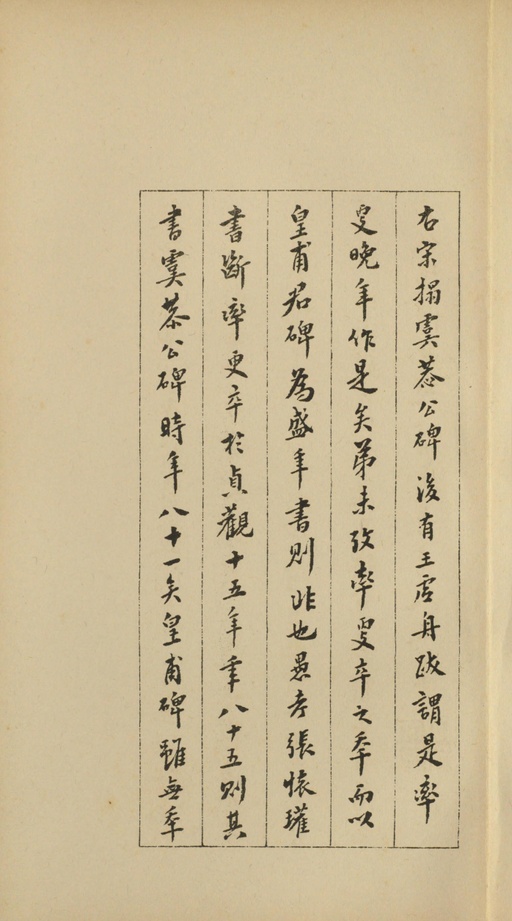 右宋搨虞恭公碑後有王虛舟跋謂是率
叟晚年作是矣第未攷率叟卒之年而以
皇甫君碑為盛年書則非也愚考張懷瓘
書斷率更卒於貞觀十五年年八十五則其
書虞恭公碑時年八十一矣皇甫碑雖無年